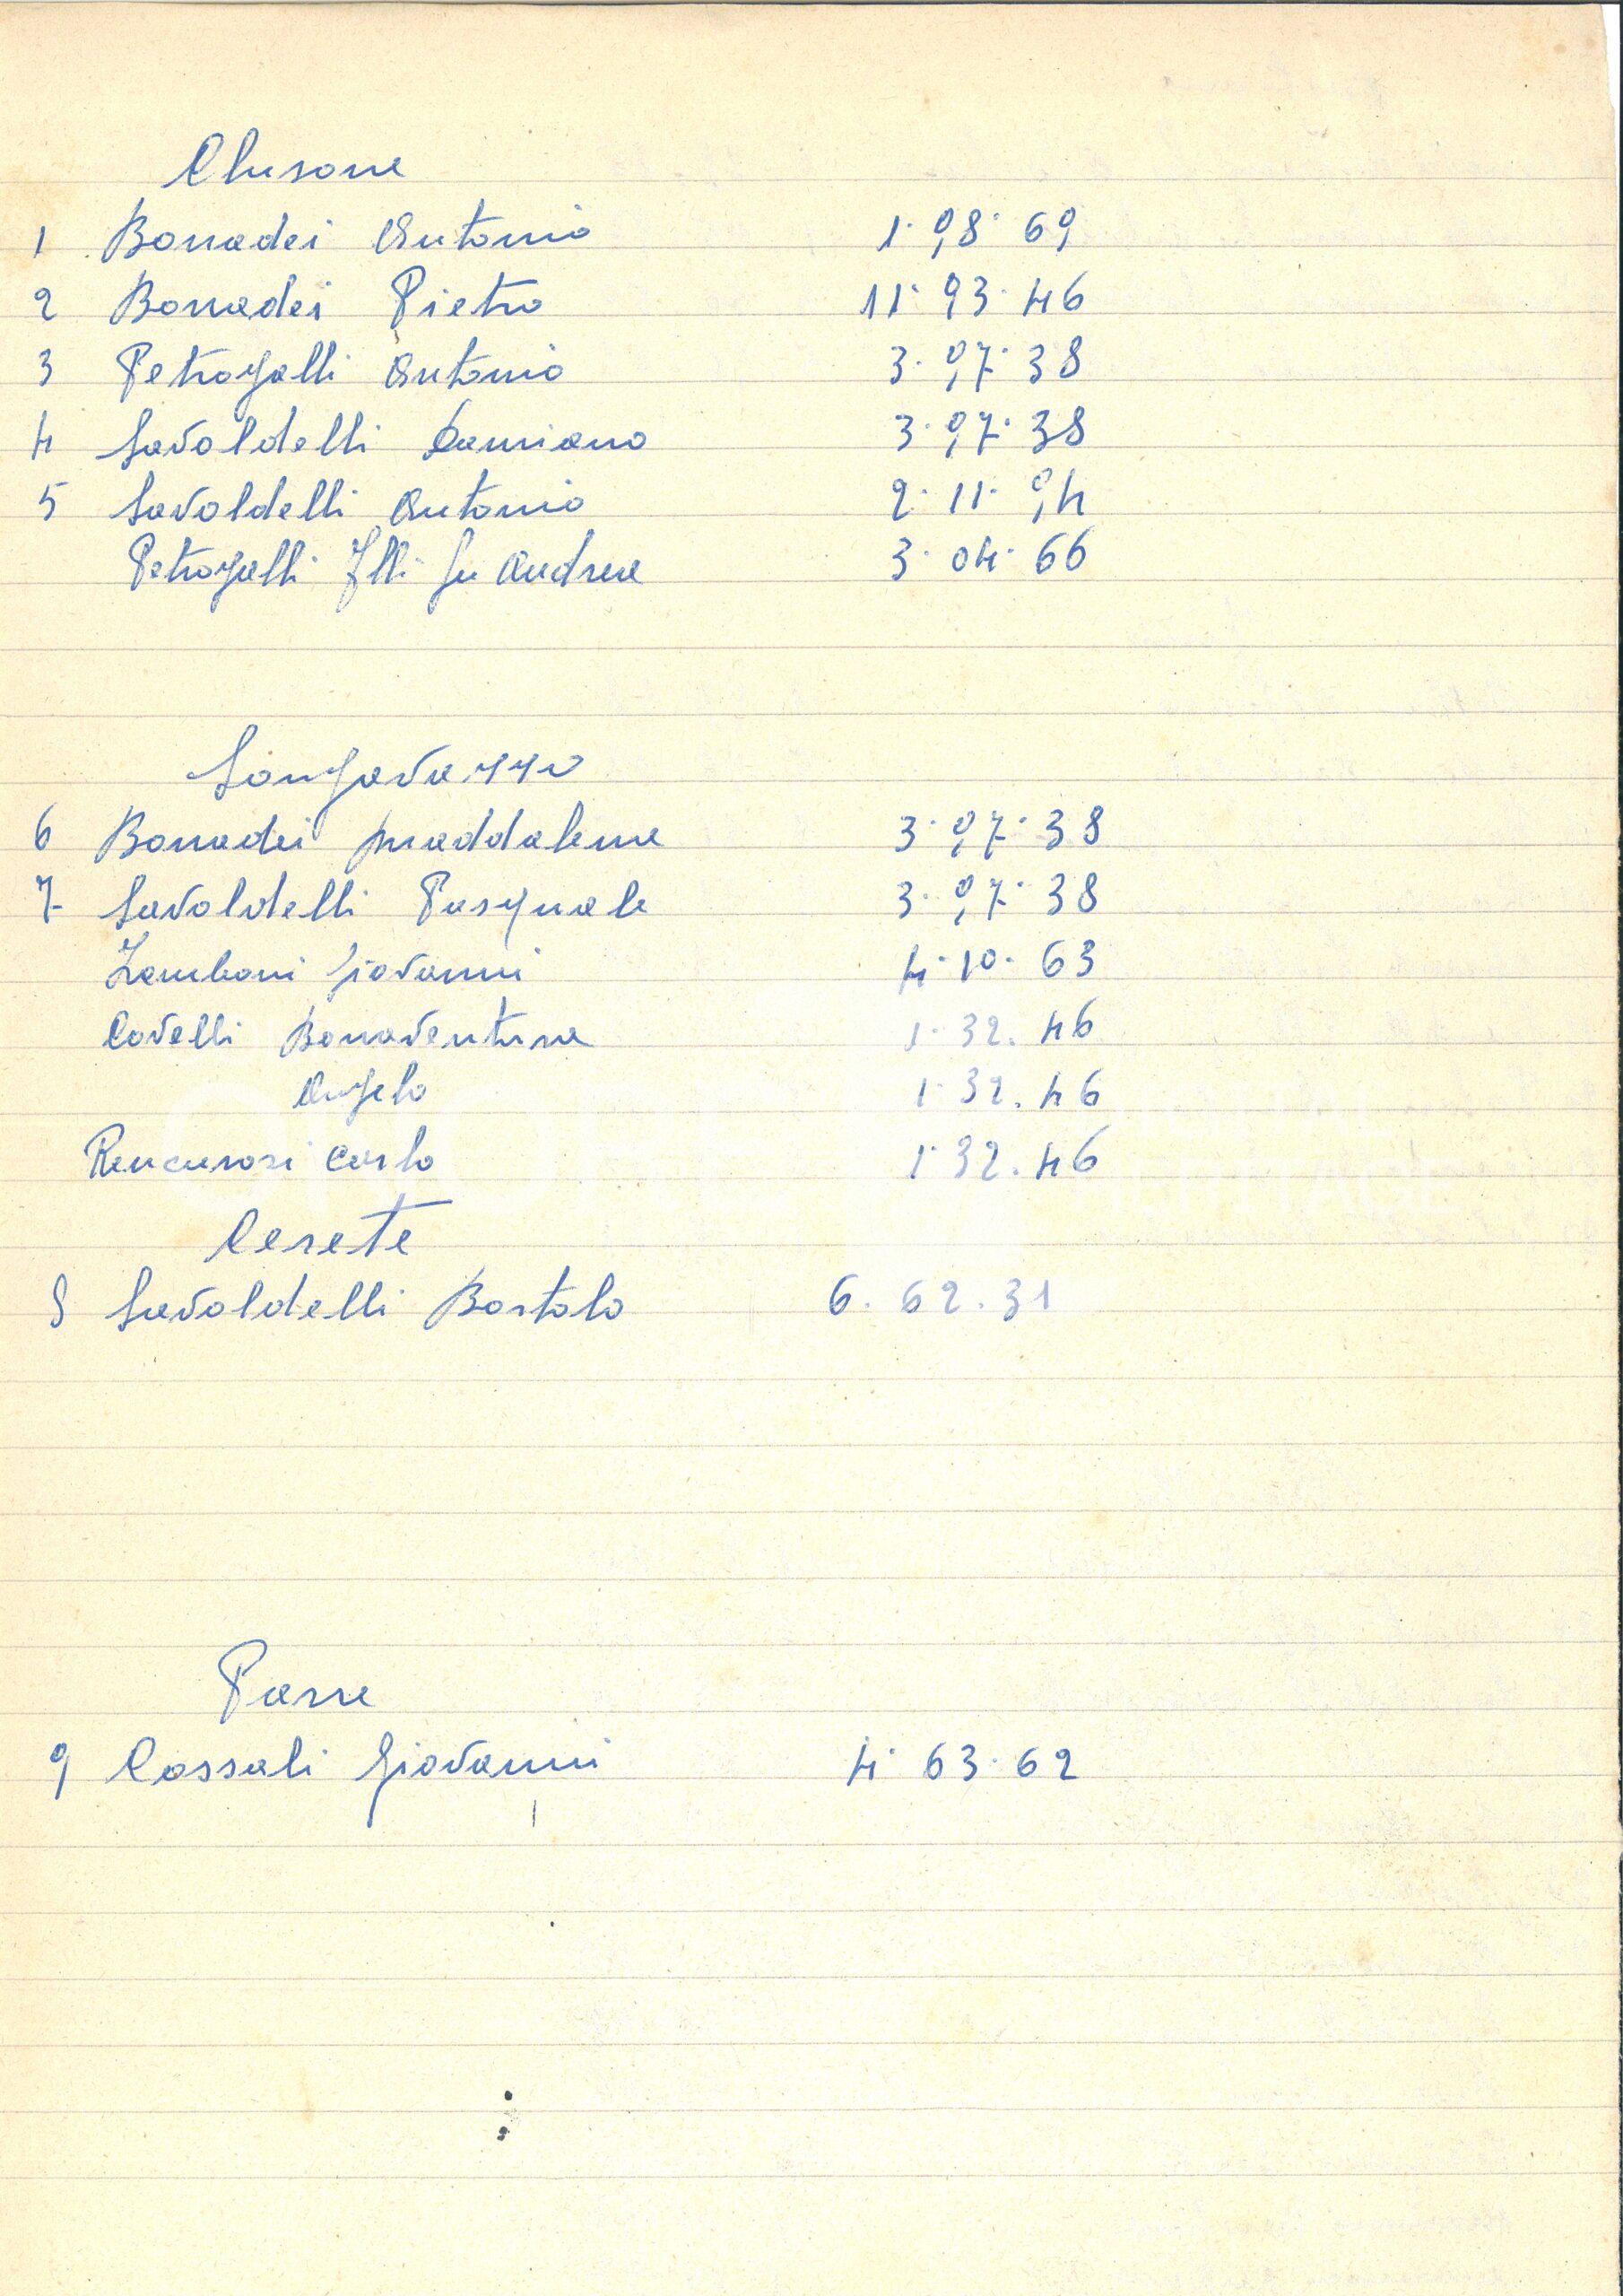 Clusone
1 Bonadei Antonio 1· 98· 69
2 Bonadei Pietro 11· 93· 46
3 Petrogalli Antonio 3· 97· 38
4 Savoldelli Damiano 3· 97· 38
5 Savoldelli Antonio 2· 11· 94
Petrogalli Flli fu Andrea 3· 04· 66
Songavazzo
6 Bonadei Maddalena 3· 97· 38
7 Savoldelli Pasquale 3· 97· 38
Zamboni Giovanni 4· 10· 63
Covelli Bonaventura 1· 32. 46
Angelo 1· 32. 46
Rencurosi Carlo 1· 32. 46
Cerete
8 Savoldelli Bortolo 6. 62. 31
Parre
9 Cossali Giovanni 4· 63· 62